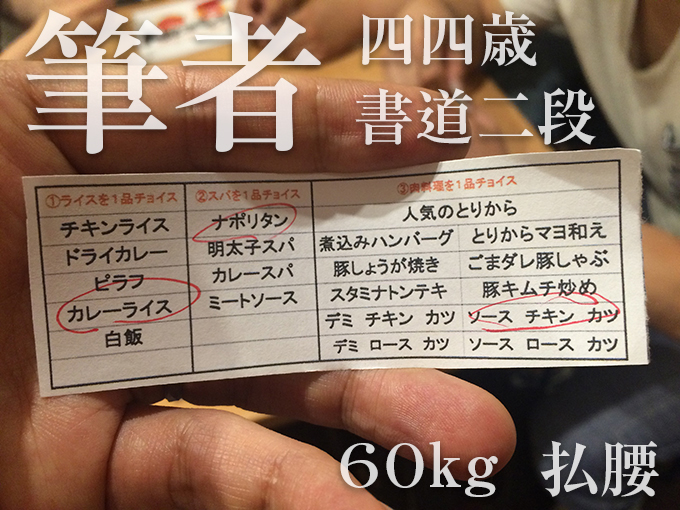 筆者
四四歳
書道二段
①ライスを1品チョイス ②スパを1品チョイス ③肉料理を1品チョイス
チキンライス ナポリタン 人気のとりから
ドライカレー 明太子スパ 煮込みハンバーグ とりからマヨ和え
ピラフ カレースパ 豚しょうが焼き ごまダレ豚しゃぶ
カレーライス ミートソース スタミナトンテキ 豚キムチ炒め
白飯 デミ チキン カツ ソース チキン カツ
デミ ロース カツ ソース ロース カツ
60kg 払腰